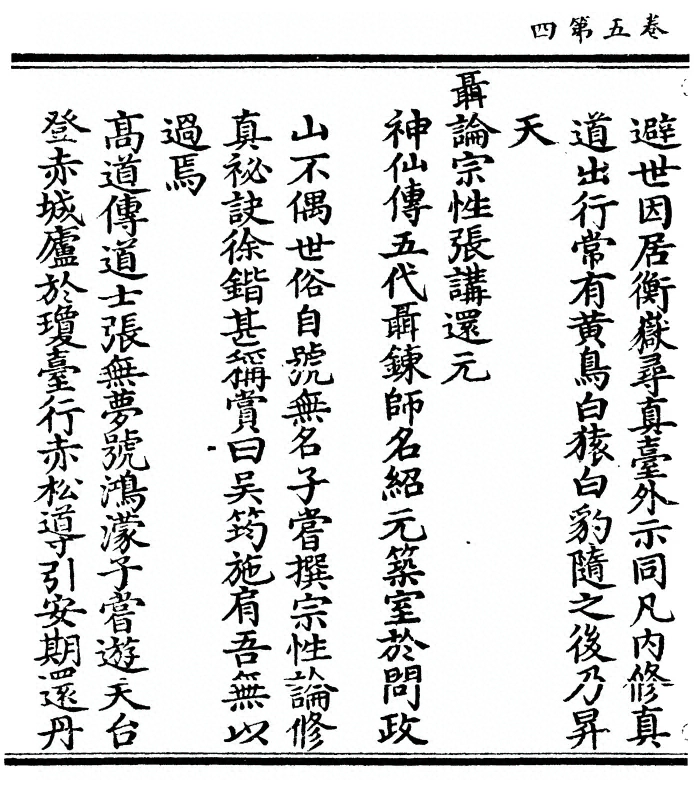 卷五第四
避世因居衡嶽尋真臺外示同凡内修真
道出行常有黄鳥白猿白豹隨之後乃昇
天
聶論宗性張講還元
神仙傳五代聶鍊師名紹元築室於問政
山不偶世俗自號無名子嘗撰宗性論修
真祕訣徐鍇甚稱賞曰吴筠施肩吾無以
過焉
髙道傳道士張無夢號鴻濛子嘗遊天台
登赤城廬於瓊臺行赤松導引安期還丹